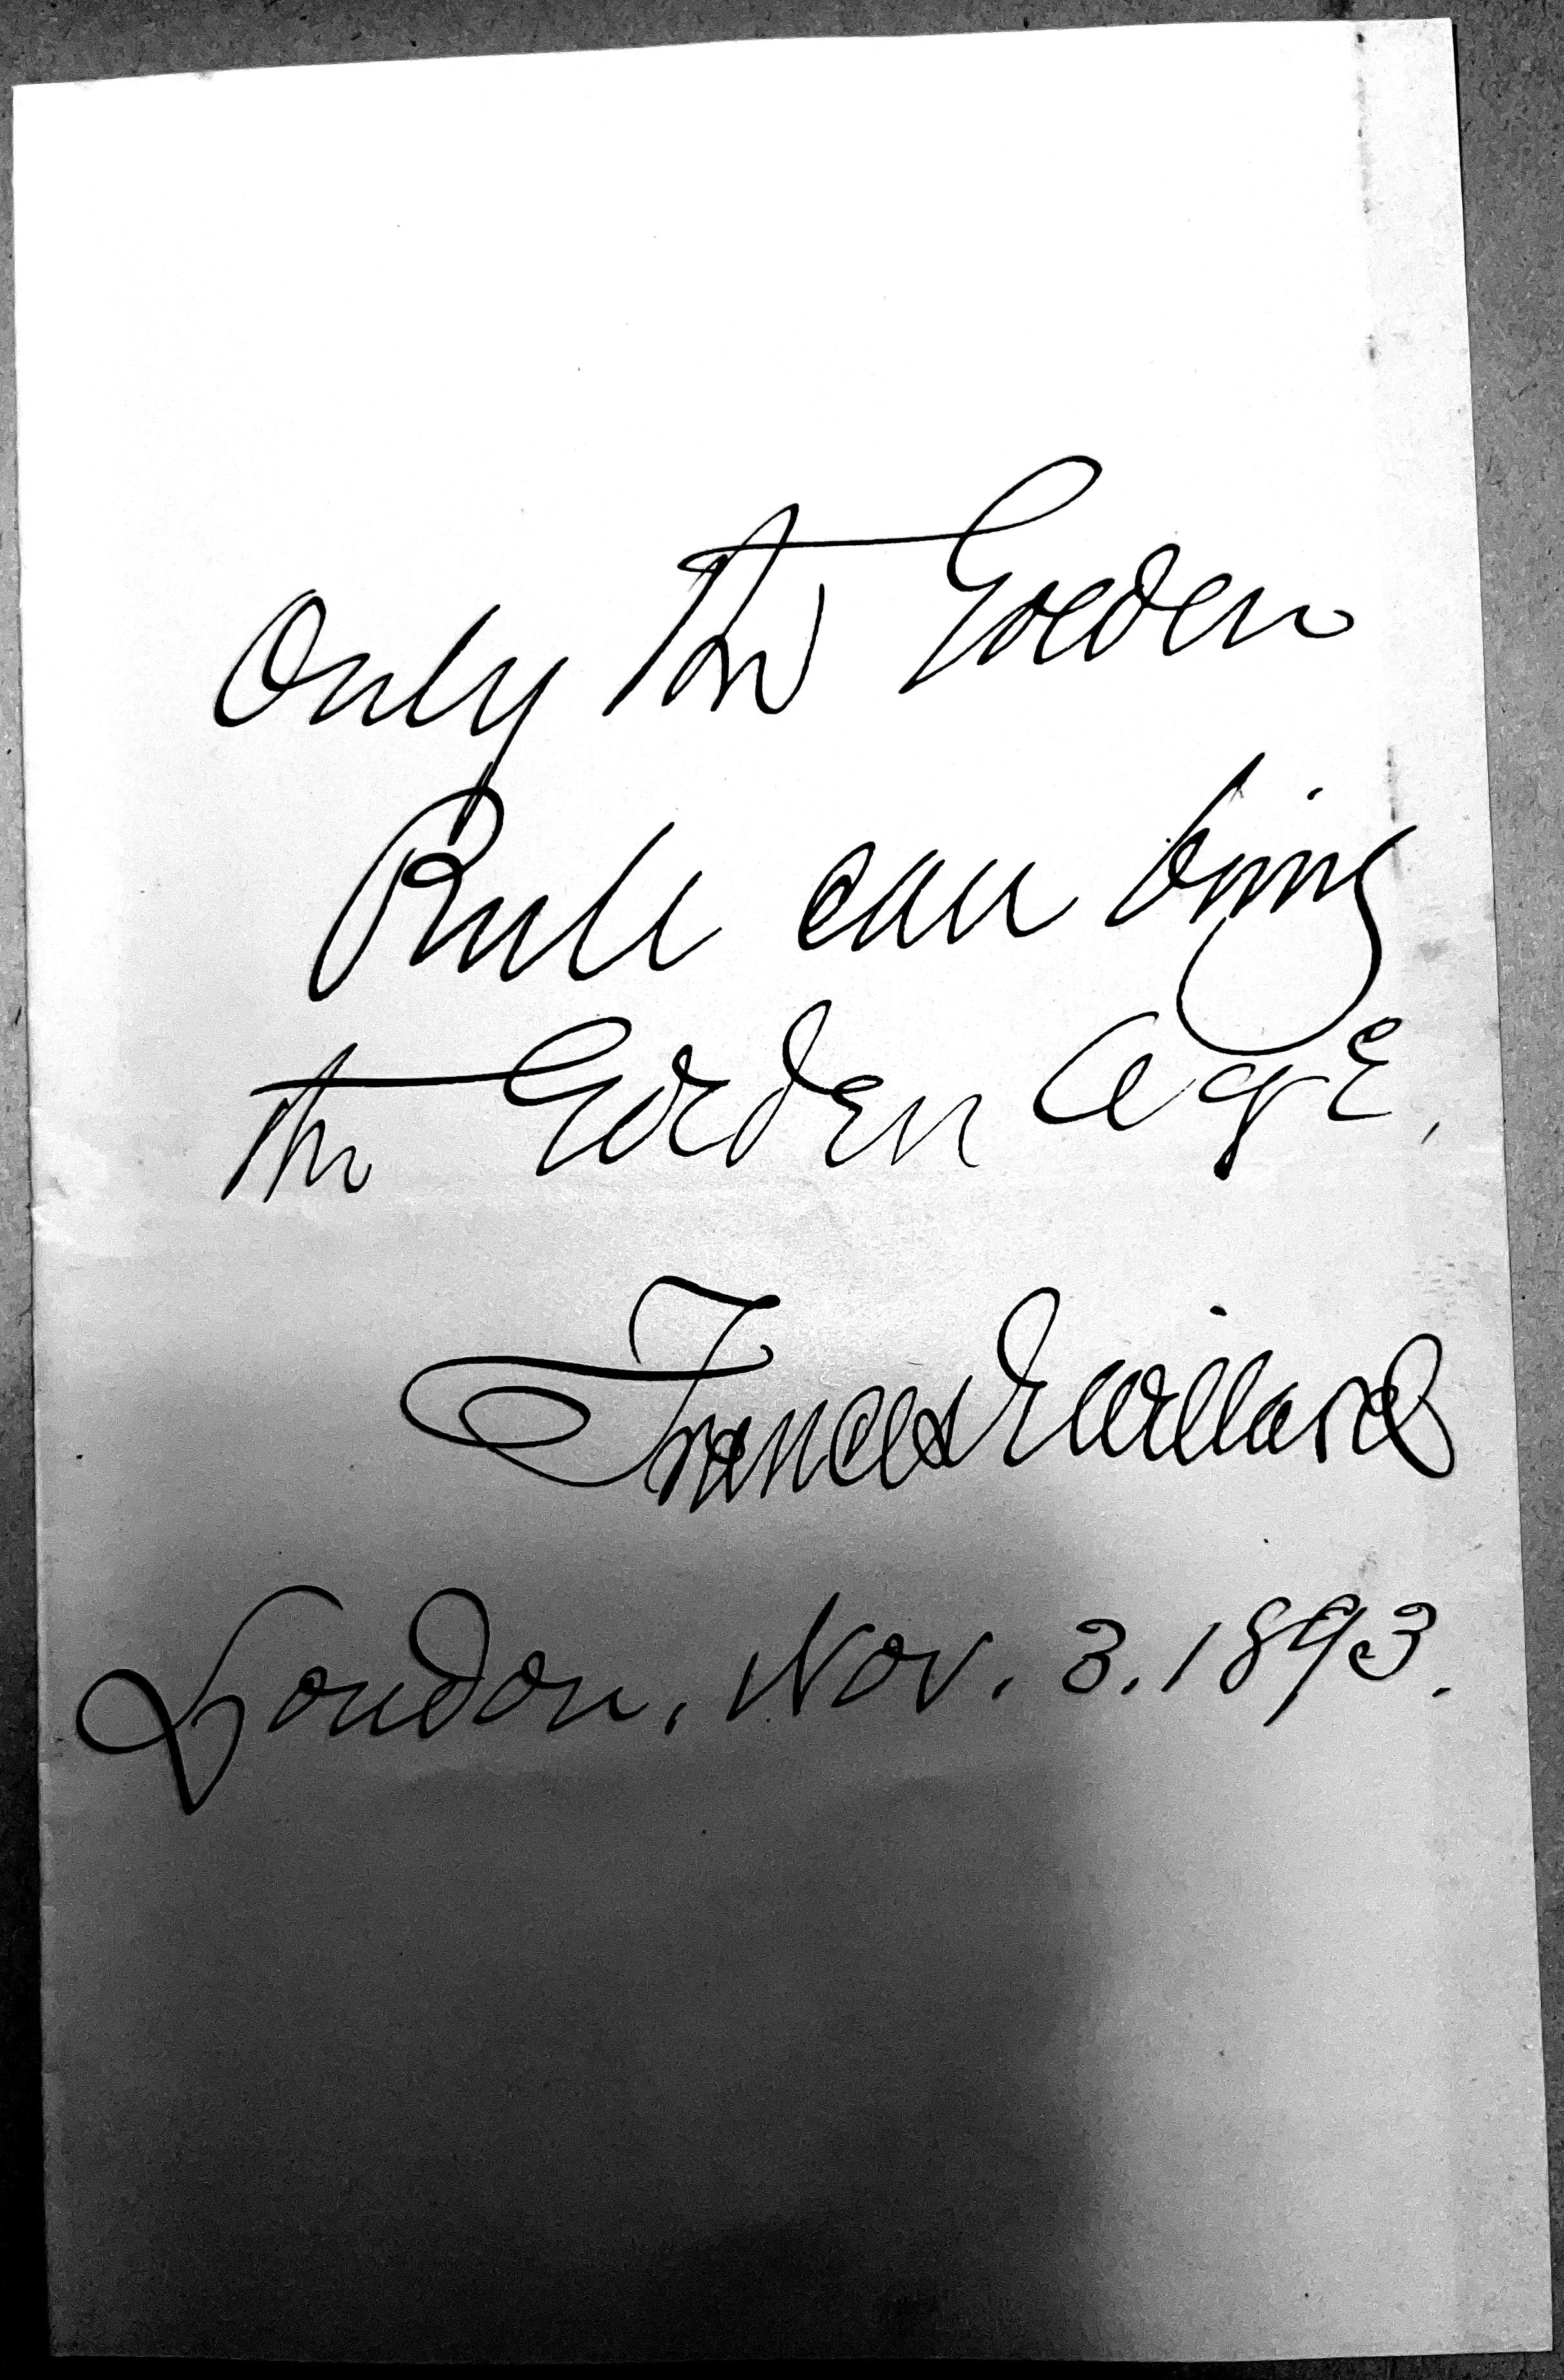 Only the Golden
Rule can bring
the Golden Age.
Frances E Willard
London, Nov. 3. 1893.